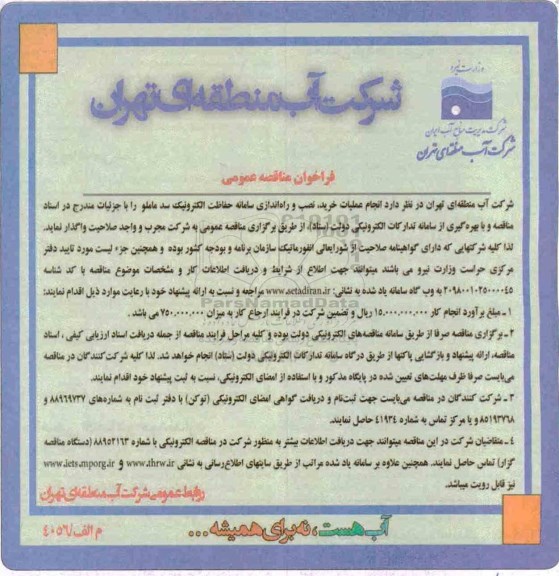 شرکت آب منطقه‌ای تهران
وزارت نیرو
شرکت مدیریت منابع آب ایران
شرکت آب منطقه‌ای تهران
فراخوان مناقصه عمومی
شرکت آب منطقه‌ای تهران در نظر دارد انجام عملیات خرید، نصب و راه‌اندازی سامانه حفاظت الکترونیک سد ماملو را با جزئیات مندرج در اسناد
مناقصه و با بهره‌گیری از سامانه تدارکات الکترونیکی دولت (ستاد)، از طریق برگزاری مناقصه عمومی به شرکت مجرب و واجد صلاحیت واگذار نماید.
لذا کلیه شرکتهایی که دارای گواهینامه صلاحیت از شورایعالی انفورماتیک سازمان برنامه و بودجه کشور بوده و همچنین جزء لیست مورد تایید دفتر
مرکزی حراست وزارت نیرو می باشند میتوانند جهت اطلاع از شرایط و دریافت اطلاعات کار و مشخصات موضوع مناقصه با کد شناسه
۲۰۹۸۰۰۱۰۲۵۰۰۰۰۴۵ به وب گاه سامانه یاد شده به نشانی: www.setadiran.ir مراجعه و نسبت به ارائه پیشنهاد خود با رعایت موارد ذیل اقدام نمایند:
۱ ـ مبلغ برآورد انجام کار ۱۵.۰۰۰.۰۰۰.۰۰۰ ریال و تضمین شرکت در فرایند ارجاع کار به میزان ۷۵۰.۰۰۰.۰۰۰ می باشد .
۲ ـ برگزاری مناقصه صرفا از طریق سامانه مناقصه‌های الکترونیکی دولت بوده و کلیه مراحل فرایند مناقصه از جمله دریافت اسناد ارزیابی کیفی ، اسناد
مناقصه، ارائه پیشنهاد و بازگشایی پاکتها از طریق درگاه سامانه تدارکات الکترونیکی دولت (ستاد) انجام خواهد شد. لذا کلیه شرکت‌کنندگان در مناقصه
می‌بایست صرفا ظرف مهلت‌های تعیین شده در پایگاه مذکور و با استفاده از امضای الکترونیکی، نسبت به ثبت پیشنهاد خود اقدام نمایند.
۳ ـ شرکت کنندگان در مناقصه می‌بایست جهت ثبت‌نام و دریافت گواهی امضای الکترونیکی (توکن) با دفتر ثبت نام به شماره‌های ۸۸۹۶۹۷۳۷ و
۸۵۱۹۳۷۶۸ و یا مرکز تماس به شماره ۴۱۹۳۴ حاصل نمایند.
۴ ـ متقاضیان شرکت در این مناقصه میتوانند جهت دریافت اطلاعات بیشتر به منظور شرکت در مناقصه الکترونیکی با شماره ۸۸۹۵۲۱۶۳ (دستگاه مناقصه
گزار) تماس حاصل نمایند. همچنین علاوه بر سامانه یاد شده مراتب از طریق سایتهای اطلاع‌رسانی به نشانی www.thrw.ir و www.iets.mporg.ir
نیز قابل رویت میباشد.
روابط عمومی شرکت آب منطقه‌ای تهران
آب هست، نه برای همیشه...
م الف/۴۰۵۶
ParsNamadData